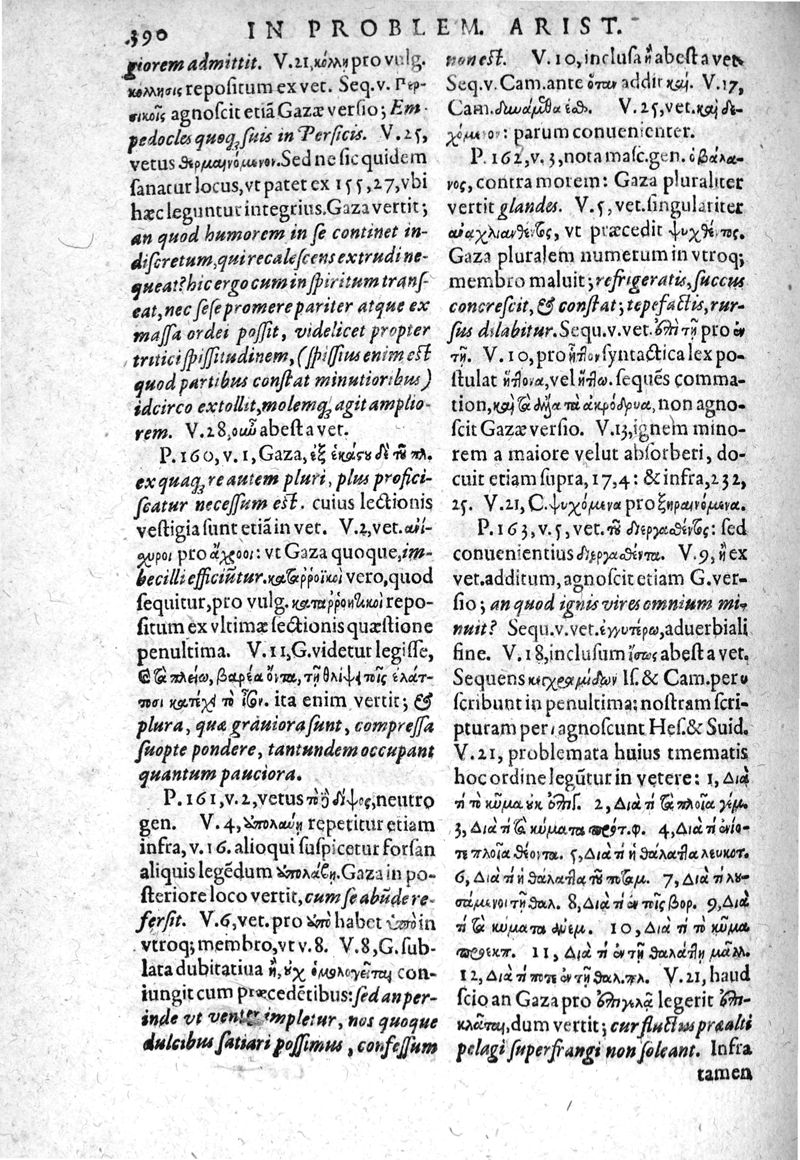 390 IN PROBLEM. ARIST.
giorem admittit. V. 21, κόλλη pro vulg.
κόλλησις repositum ex vet. Seq. v. Περ-
σικοῖς agnoscit etiã Gazæ versio; Em-
pedocles quoq; suis in Persicis. V. 25,
vetus θερμαινόμενον. Sed ne sic quidem
sanatur locus, vt patet ex 155, 27, vbi
hæc leguntur integrius. Gaza vertit;
an quod humorem in se continet in-
discretum, qui recalescens extrudi ne-
queat? hic ergo cum in spiritum trans-
eat, nec sese promere pariter atque ex
massa ordei possit, videlicet propter
tritici spissitudinem, (spissius enim est
quod partibus constat minutioribus)
idcirco extollit, molemq; agit amplio-
rem. V. 28, οιω abest a vet.
P. 160, v. 1, Gaza, ἐξ ἑκάςου δὲ τοῦ πλ.
ex quaq; re autem pluri, plus profici-
scatur necessum est. cuius lectionis
vestigia sunt etiã in vet. V. 2, vet. ανί-
χυροι pro ἄχροοι: vt Gaza quoque, im-
becilli efficiũtur. καταῤῥοϊκοὶ vero, quod
sequitur, pro vulg. καταῤῥοητικοὶ repo-
situm ex vltimæ sectionis quæstione
penultima. V. 11, G. videtur legisse,
καὶ τὰ πλείω, βαρέα ὄντα, τῇ θλίψει τοῖς ἐλάτ-
τοσι κατέχει τὸ ἴσον. ita enim vertit; &
plura, quæ grauiora sunt, compressa
suopte pondere, tantundem occupant
quantum pauciora.
P. 161, v. 2, vetus τὸ δίψος, neutro
gen. V. 4, ὑπολαύῃ repetitur etiam
infra, v. 16. alioqui suspicetur forsan
aliquis legẽdum ὑπολάβῃ. Gaza in po-
steriore loco vertit, cum se abũde re-
fersit. V. 6, vet. pro ὑπὸ habet ὑπὸ in
vtroq; membro, vt v. 8. V. 8, G. sub-
lata dubitatiua ἢ, οὐχ ὁμολογεῖται con-
iungit cum præcedẽtibus: sed an per-
inde vt venter impletur, nos quoque
dulcibus satiari possimus, confessum
non est. V. 10, inclusa ἢ abest a vet.
Seq. v. Cam. ante ὅταν addit καί. V. 17,
Cam. δυνάμεθα V. 25, vet. καὶ δε-
χόμενον: parum conuenienter.
P. 162, v. 3, nota masc. gen. ὁ βάλα-
νος, contra morem: Gaza pluraliter
vertit glandes. V. 5, vet. singulariter
αναχλιανθέντος, vt præcedit ψυχθέντος.
Gaza pluralem numerum in vtroq;
membro maluit; refrigeratis, succus
concrescit, & constat; tepefactis, rur-
sus dilabitur. Sequ. v. vet. ἐπὶ τῇ pro ἐν
τῇ. V. 10, pro ἧττον syntactica lex po-
stulat ἥττονα, vel ἥττω. sequẽs comma-
tion, καὶ τὰ δῆτα τὰ ἀκρόδρυα, non agno-
scit Gazæ versio. V. 13, ignem mino-
rem a maiore velut absorberi, do-
cuit etiam supra, 17, 4: & infra, 232,
25. V. 21, C. ψυχόμενα pro ξηραινόμενα.
P. 163, v. 5, vet. τοῦ διεργαθέντος: sed
conuenientius διεργαθέντα. V. 9, ἢ ex
vet. additum, agnoscit etiam G. ver-
sio; an quod ignis vires omnium mi-
nuit? Sequ. v. vet. ἐγγυτέρω, aduerbiali
fine. V. 18, inclusum ἴσως abest a vet.
Sequens κεγχραμίδων Is. & Cam. per υ
scribunt in penultima: nostram scri-
pturam per ι agnoscunt Hes. & Suid.
V. 21, problemata huius tmematis
hoc ordine legũtur in vetere: 1, Διὰ
τί τὸ κῦμα οὐκ ἐπιγ. 2, Διὰ τί τὰ πλοῖα γέμ.
3, Διὰ τί τὰ κύματα πρότ. φ. 4, Διὰ τί ἐνίο-
τε πλοῖα θέοντα. 5, Διὰ τί ἡ θάλαττα λευκοτ.
6, Διὰ τί ἡ θάλαττα τοῦ ποταμ. 7, Διὰ τί λου-
σάμενοι τῇ θαλ. 8, Διὰ τί ἐν τοῖς βορ. 9, Διὰ
τί τὰ κύματα ἀνεμ. 10, Διὰ τί τὸ κῦμα
προεκπ. 11, Διὰ τί ἐν τῇ θαλάττῃ μᾶλλ.
12, Διὰ τί ποτε ἐν τῇ θαλ. πλ. V. 21, haud
scio an Gaza pro ἐπιγελᾷ legerit ἐπι-
κλᾶται, dum vertit; cur fluctus præalti
pelagi superfrangi non soleant. Infra
tamen